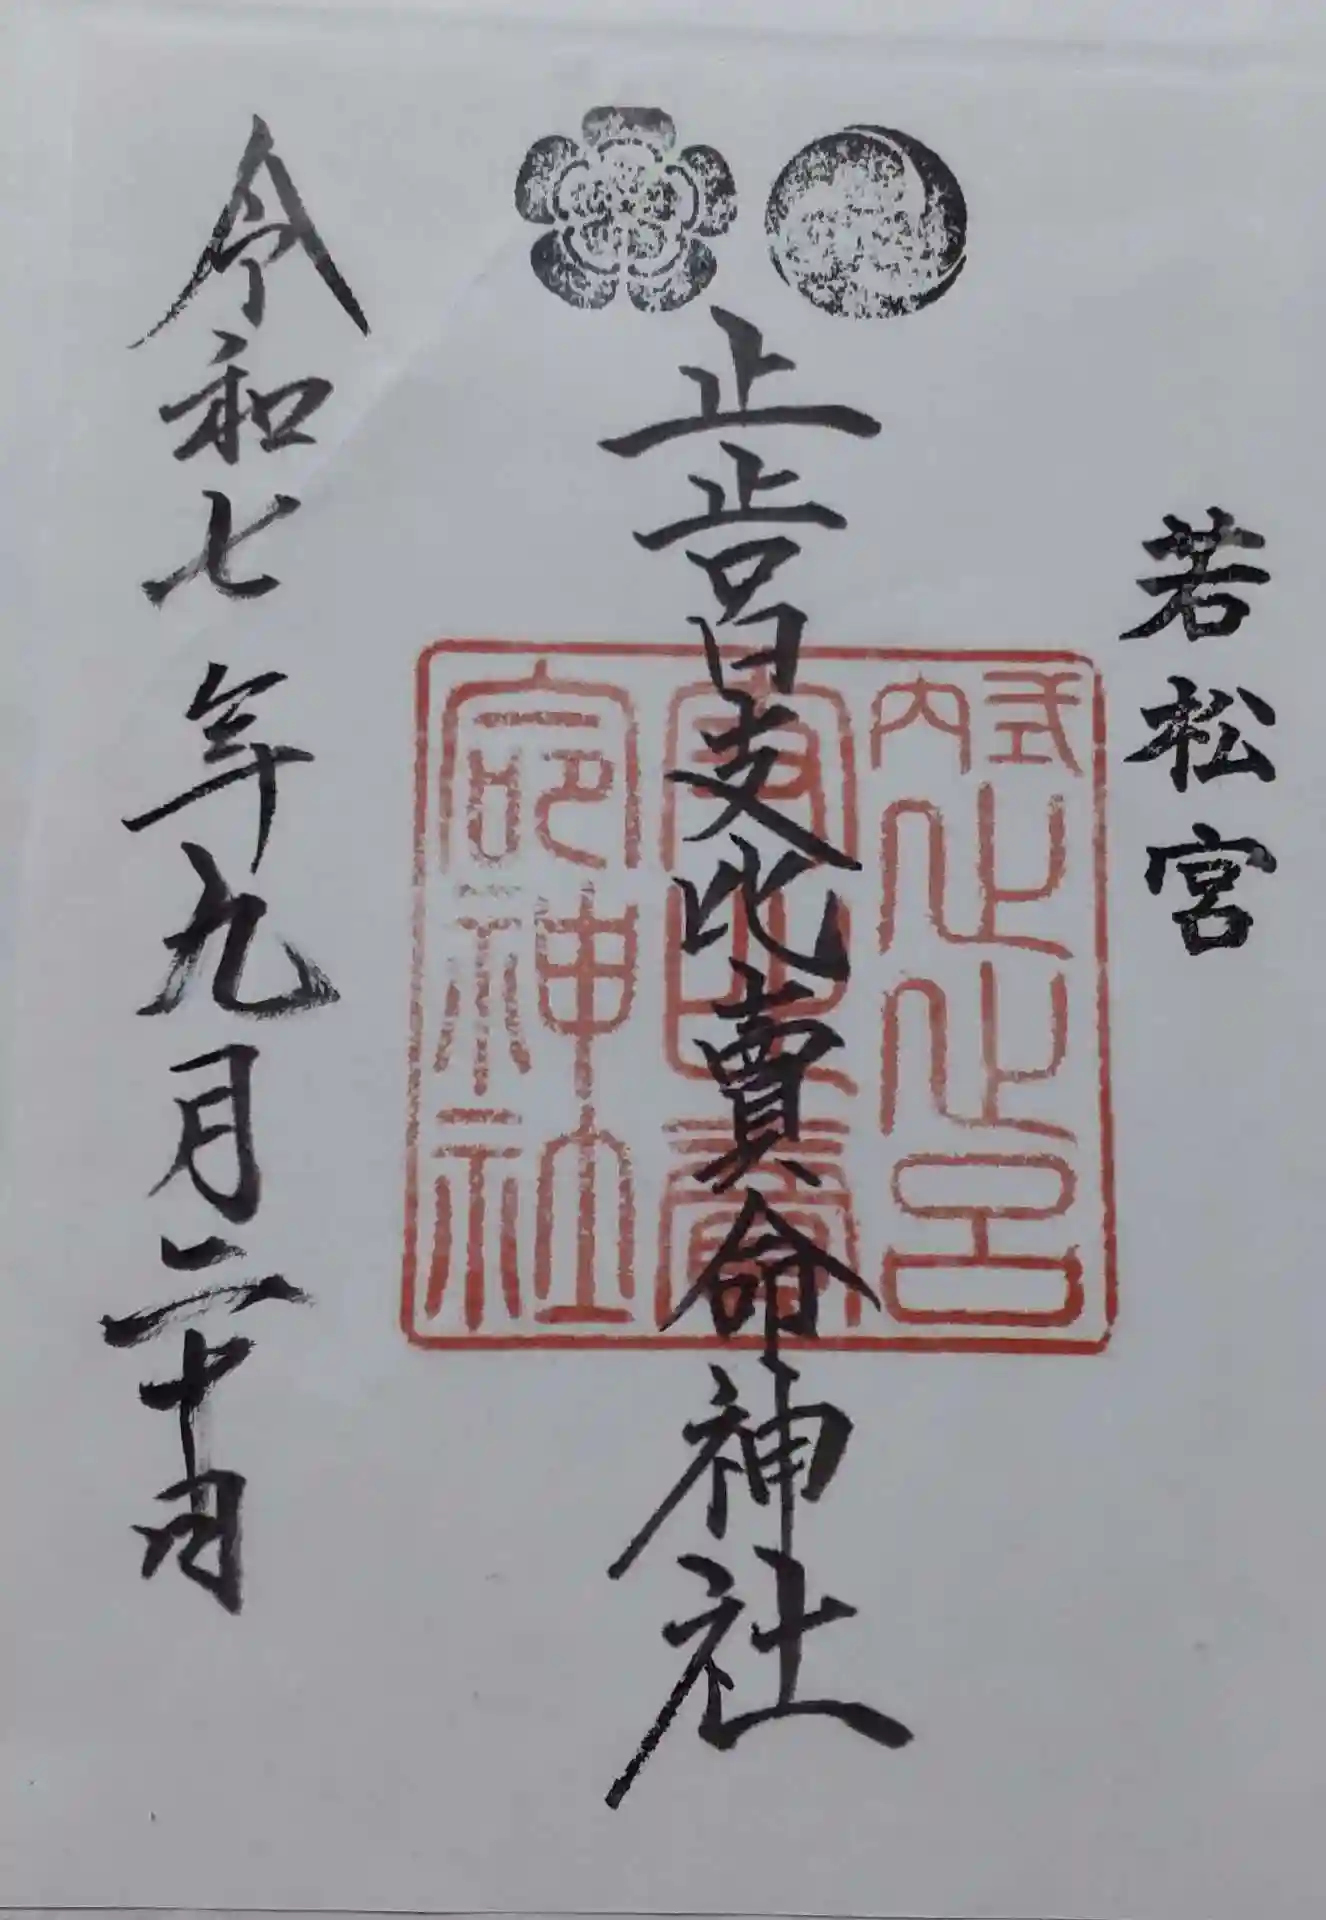 若松宮
止止呂支比賣命神社
令和七年九月二十日
式内止止呂
支比賣
命神社